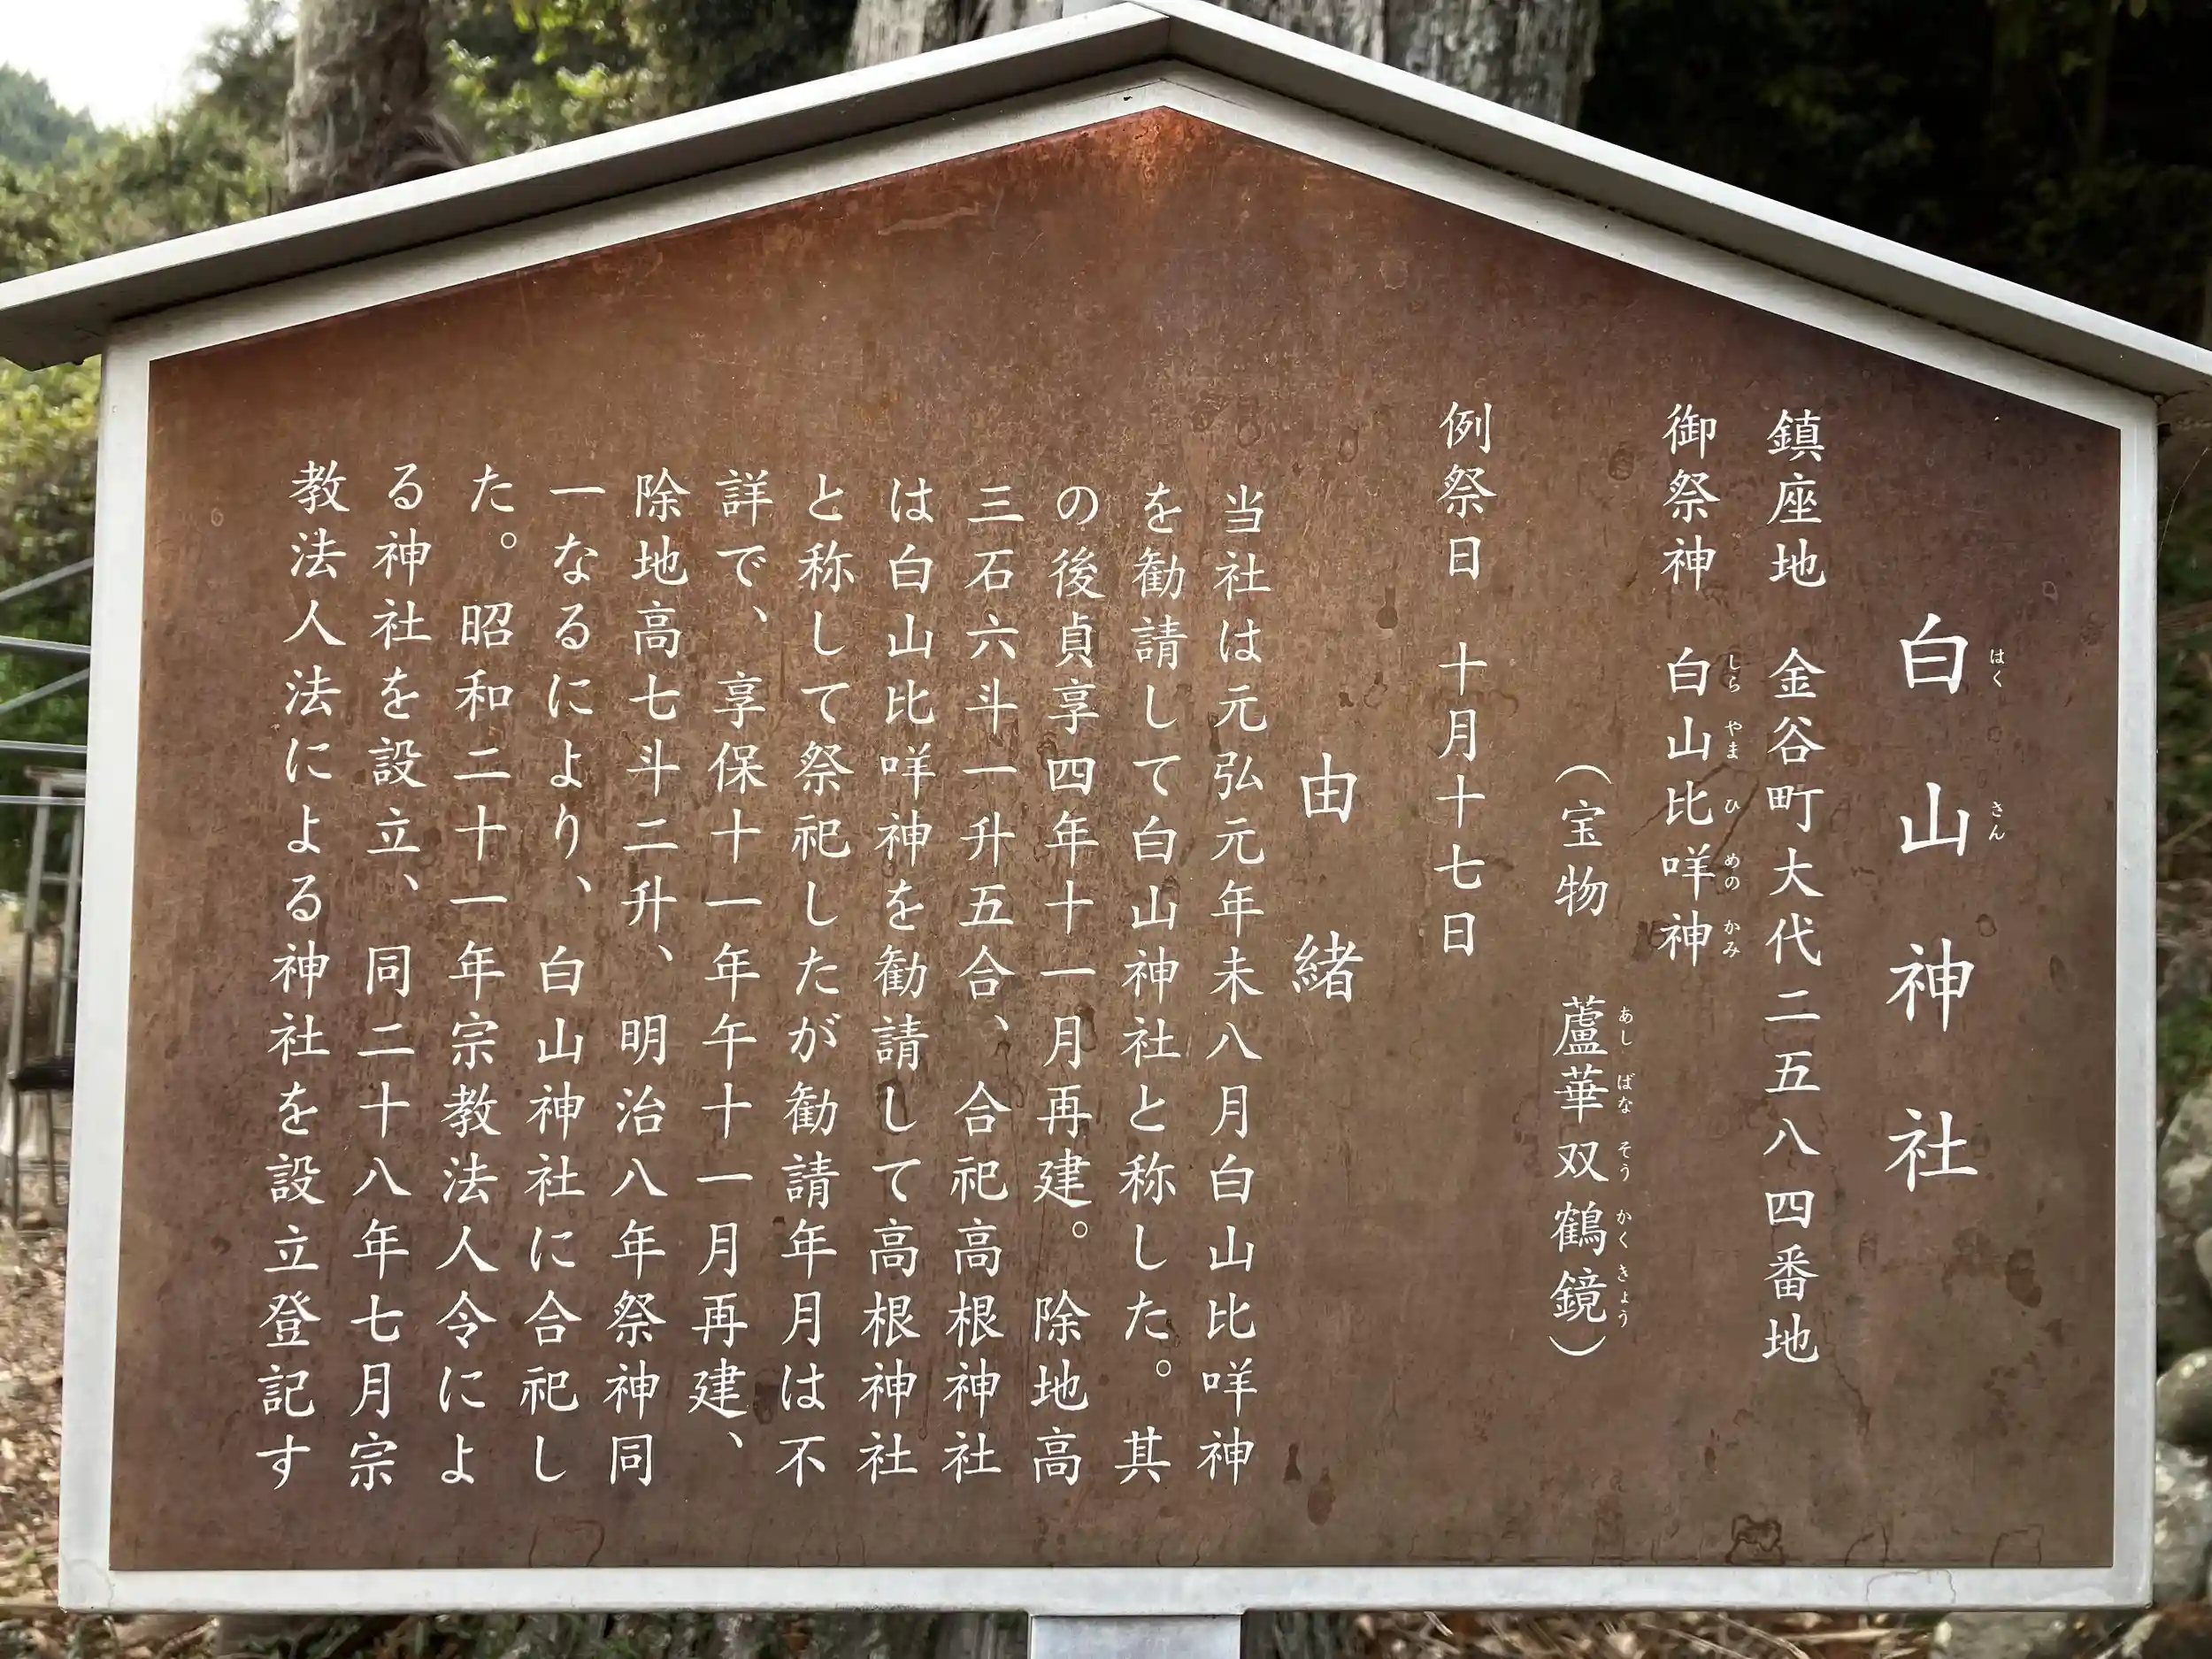 白山神社
はくさん
鎮座地 金谷町大代二五八四番地
御祭神 白山比咩神
しらやまひめのかみ
(宝物 蘆華双鶴鏡)
あしばなそうかくきょう
例祭日 十月十七日
由緒
当社は元弘元年未八月白山比咩神
を勧請して白山神社と称した。其
の後貞享四年十一月再建。除地高
三石六斗一升五合、合祀高根神社
は白山比咩神を勧請して高根神社
と称して祭祀したが勧請年月は不
詳で、享保十一年午十一月再建、
除地高七斗二升、明治八年祭神同
一なるにより、白山神社に合祀し
た。昭和二十一年宗教法人令によ
る神社を設立、同二十八年七月宗
教法人法による神社を設立登記す